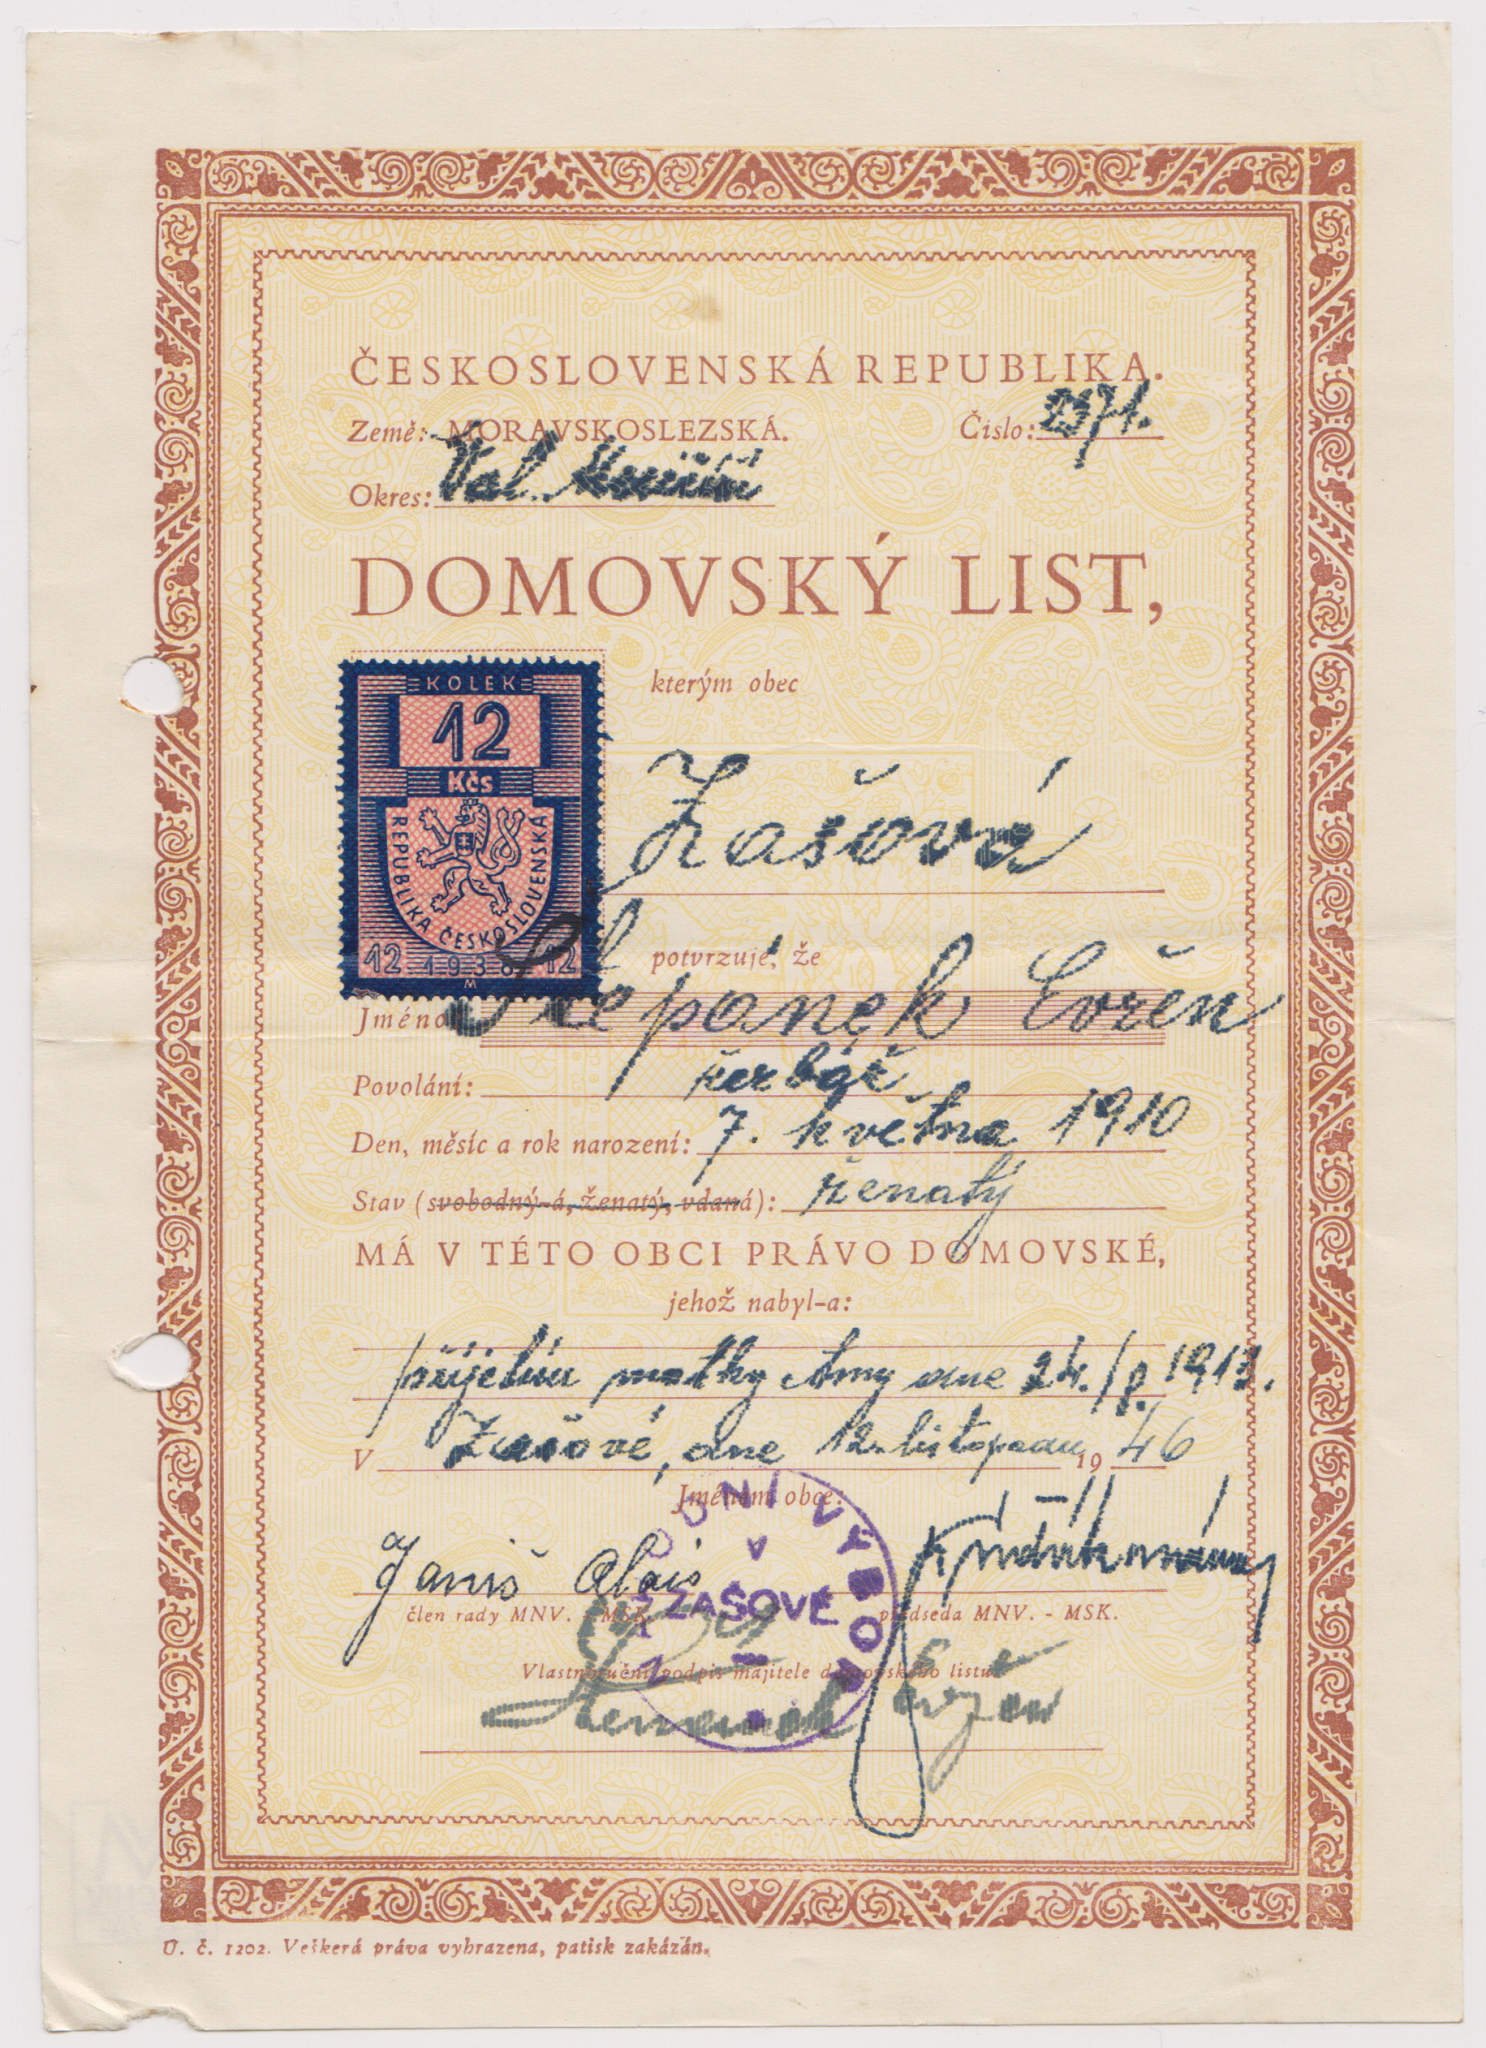 ČESKOSLOVENSKÁ REPUBLIKA.
Země: MORAVSKOSLEZSKÁ. Číslo: 2371.
Okres: Val. Meziříčí
DOMOVSKÝ LIST,
KOLEK
12
Kčs
REPUBLIKA ČESKOSLOVENSKÁ
12 1938 12
M
kterým obec
Zašová
potvrzuje, že
Jméno Štěpánek Evžen
Povolání: řezbář
Den, měsíc a rok narození: 7. května 1910
Stav (svobodný-á, ženatý, vdaná): ženatý
MÁ V TÉTO OBCI PRÁVO DOMOVSKÉ,
jehož nabyl-a:
přijetím matky dne 24./8. 1913.
V Zašové, dne 12. listopadu 1946
Jménem obce:
Janiš Alois
člen rady MNV. - MSK. předseda MNV. - MSK.
NÍ VÝBOR
v
ZAŠOVÉ
Vlastnoruční podpis majitele domovského listu
U. č. 1202. Veškerá práva vyhrazena, patisk zakázán.